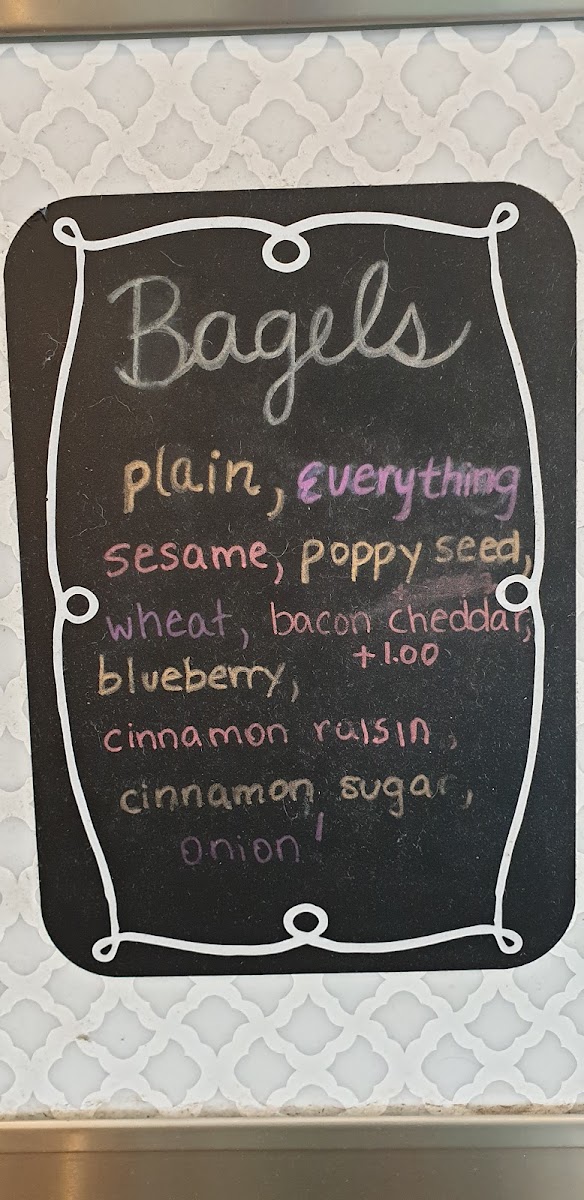 Bagels
plain, everything
sesame, poppy seed,
wheat, bacon cheddar,
+1.00
blueberry,
cinnamon raisin,
cinnamon sugar,
onion